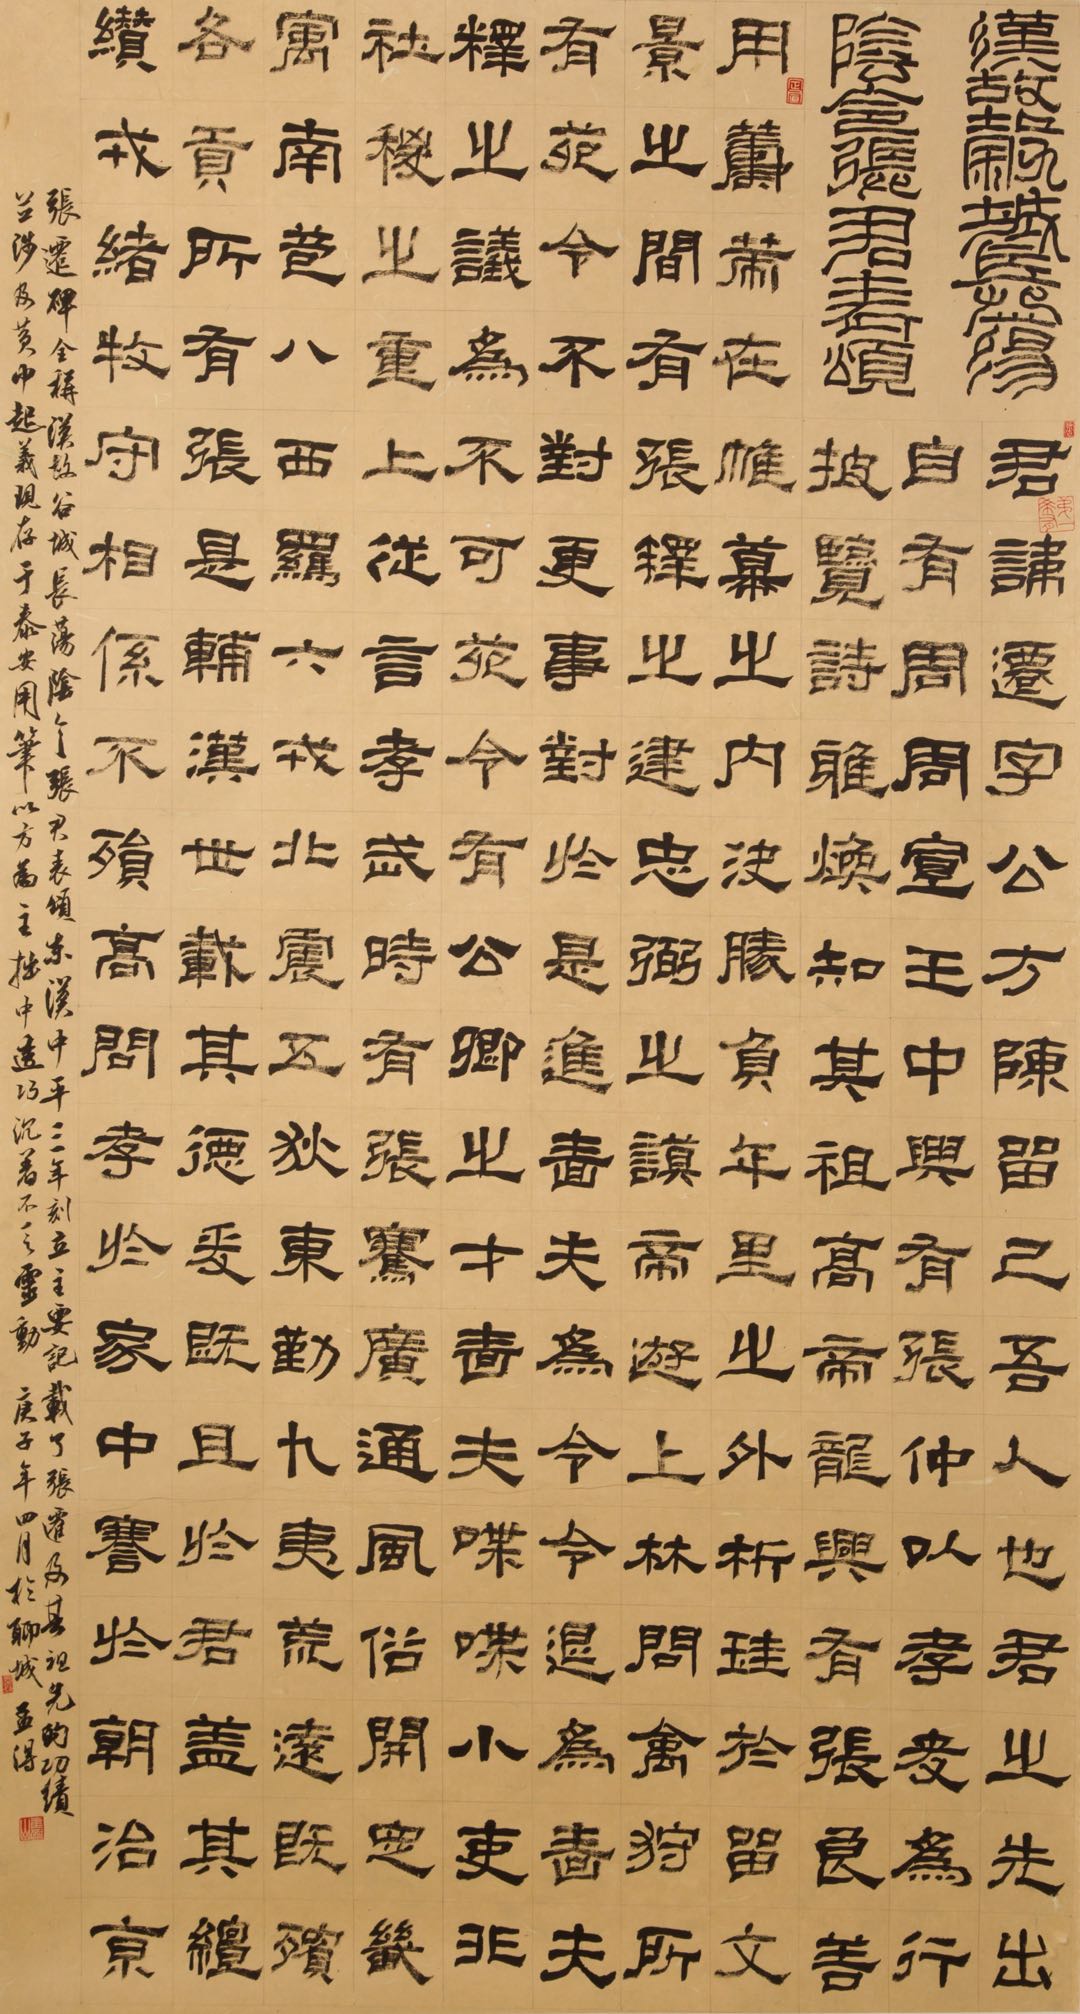 漢故穀城長蕩
陰令張君表頌
君諱遷字公方陳留己吾人也君之先出
自有周周宣王中興有張仲以孝友為行
披覽詩雅煥知其祖高帝龍興有張良善
用籌策在帷幕之內決勝負千里之外析珪於留文
景之間有張釋之建忠弼之謨帝遊上林問禽狩所
有苑令不對更事對於是進嗇夫為令令退為嗇夫
釋之議為不可苑令有公卿之才嗇夫喋喋小吏非
社稷之重上從言孝武時有張騫廣通風俗開定畿
寓南苞八蠻西羈六戎北震五狄東勤九夷荒遠既殯
各貢所有張是輔漢世載其德爰既且於君蓋其繵
纘戎緒牧守相係不殞高問孝於家中謇於朝治京
張遷碑全稱漢故谷城長蕩陰令張君表頌東漢中平三年刻立主要記載了張遷及其祖先的功績
並涉及黃巾起義現存于泰安用筆以方為主拙中透巧沉着不乏靈動 庚子年四月於聊城 孟得